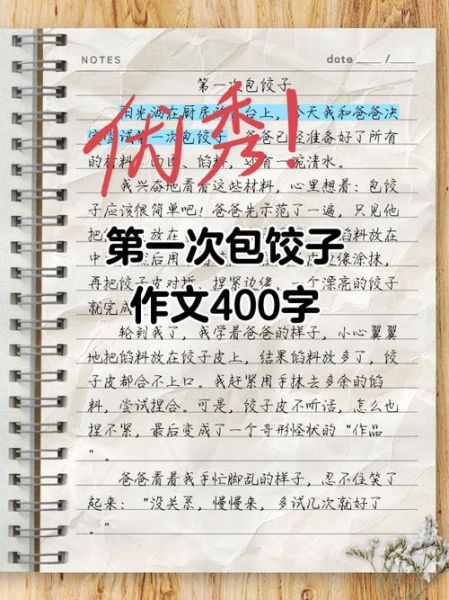 NOTES
date ___ / ___
第一次包饺子
阳光洒在厨房的台上,今天我和爸爸决
第一次包饺子。爸爸已经准备好了所有
的材料:面团、馅料,还有一碗清水。
优秀!
我兴奋地看着这些材料,心里想着:包饺
子应该很简单吧!爸爸先示范了一遍,只见他
放在
馅料放在
中
缘涂抹,
第一次包饺子
作文400字
再把饺子皮对折,捏紧边缘,一个漂亮的饺子
就完成
轮到我了,我学着爸爸的样子,小心翼翼
地把馅料放在饺子皮上,结果馅料放多了,饺
子皮都合不上口。我赶紧用手抹去多余的馅
料,尝试捏合。可是,饺子皮不听话,怎么也
捏不紧,最后变成了一个奇形怪状的“作品
”。
爸爸看着我手忙脚乱的样子,忍不住笑了
起来:“没关系,慢慢来,多试几次就好了
。”